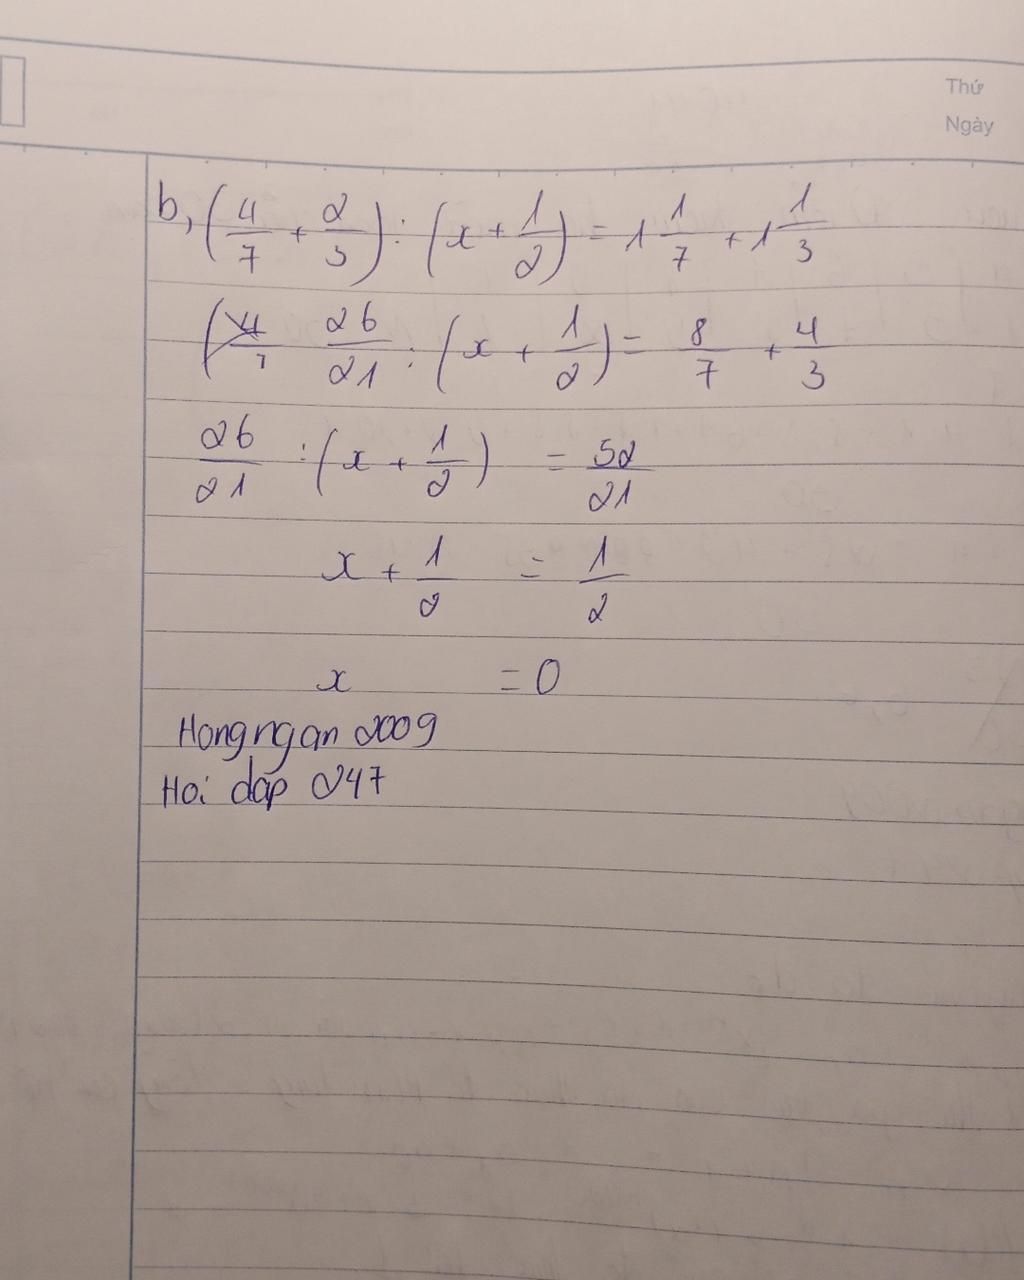 Thứ
Ngày
b, (4/7 + 2/3) : (x + 1/2) = 1 1/7 + 1 1/3
26/21 : (x + 1/2) = 8/7 + 4/3
26/21 : (x + 1/2) = 52/21
x + 1/2 = 1/2
x = 0
Hongngan 2009
Hoi dap 247